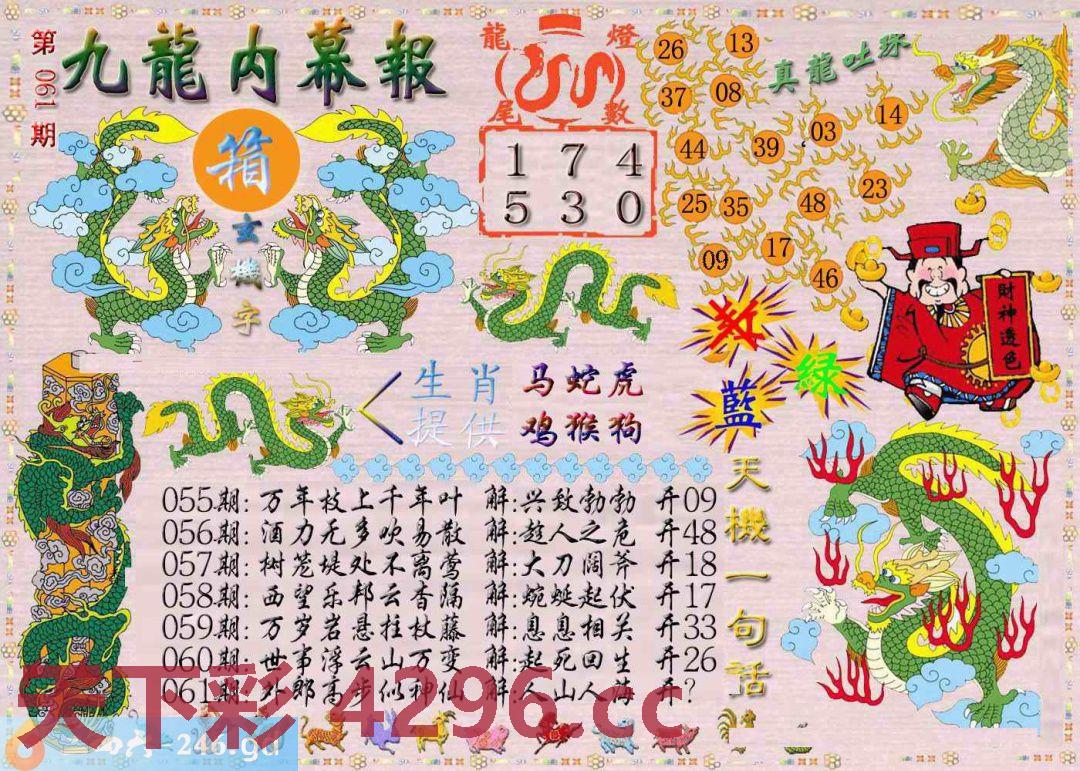 第061期
九龍内幕報
箱
玄機字
龍燈
尾數
1 7 4
5 3 0
真龍吐珠
26 13
37 08
44 39 03 14
25 35 48 23
09 17 46
財神透色
紅
綠
藍
生肖 马蛇虎
提供 鸡猴狗
天機一句话
055期: 万年枝上千年叶 解:兴致勃勃 开09
056期: 酒力无多吹易散 解:趁人之危 开48
057期: 树笼堤处不离莺 解:大刀阔斧 开18
058期: 西望乐邦云香隔 解:蜿蜒起伏 开17
059期: 万岁岩悬拄杖藤 解:息息相关 开33
060期: 世事浮云山万变 解:起死回生 开26
061期: 外郎高步似神仙 解:人山人海 开?
天下彩 4296.cc
=246.gd